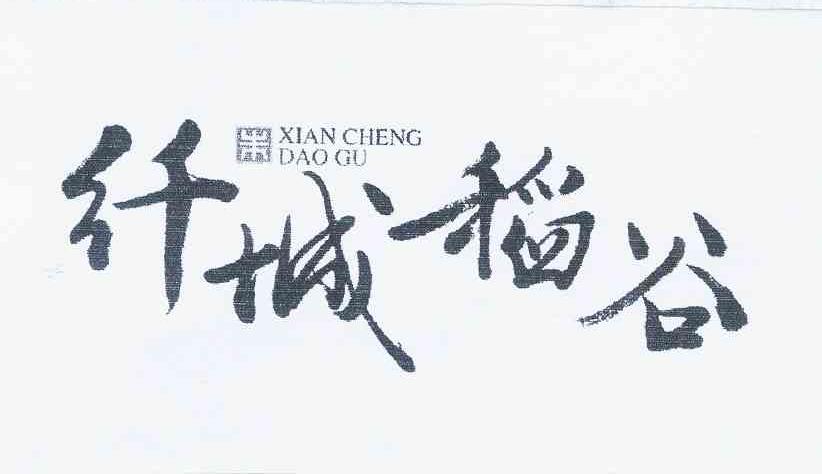 纤城稻谷
XIAN CHENG
DAO GU